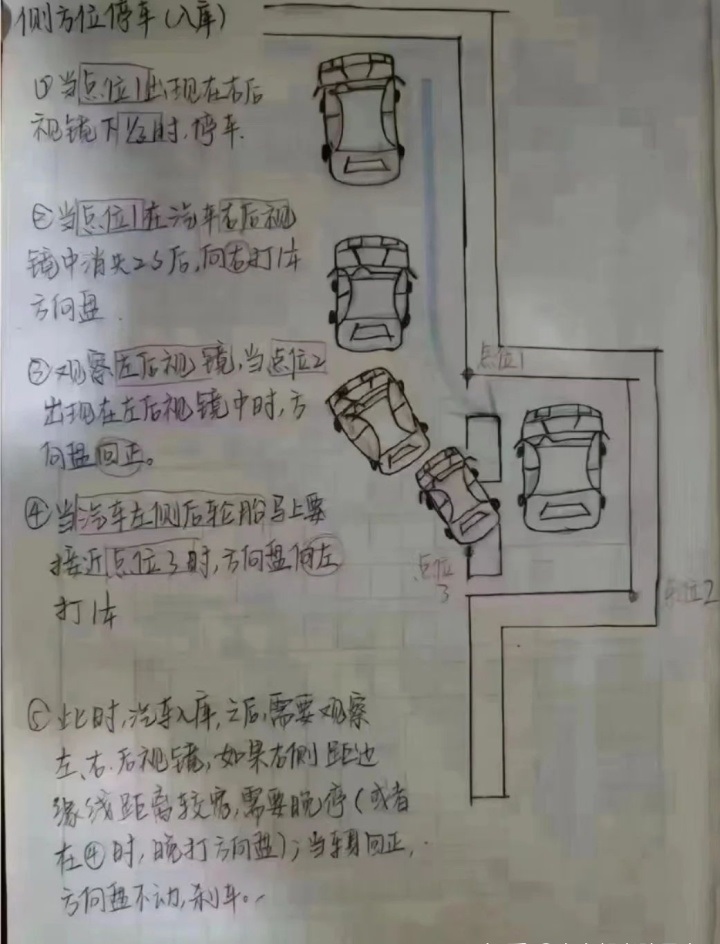 侧方位停车(入库)
①当点位1出现在右后
视镜下沿时,停车.
②当点位1在汽车右后视
镜中消失2S后,向右打1本
方向盘.
③观察左后视镜,当点位2
出现在左后视镜中时,方
向盘回正。
④当汽车左侧后轮胎马上要
接近点位3时,方向盘向左
打1本
⑤此时,汽车入库,之后,需要观察
左、右后视镜,如果右侧距边
缘线距离较宽,需要晚停(或者
在④时,晚打方向盘);当车身回正,
方向盘不动,刹车。
点位1
点位
3
点位2